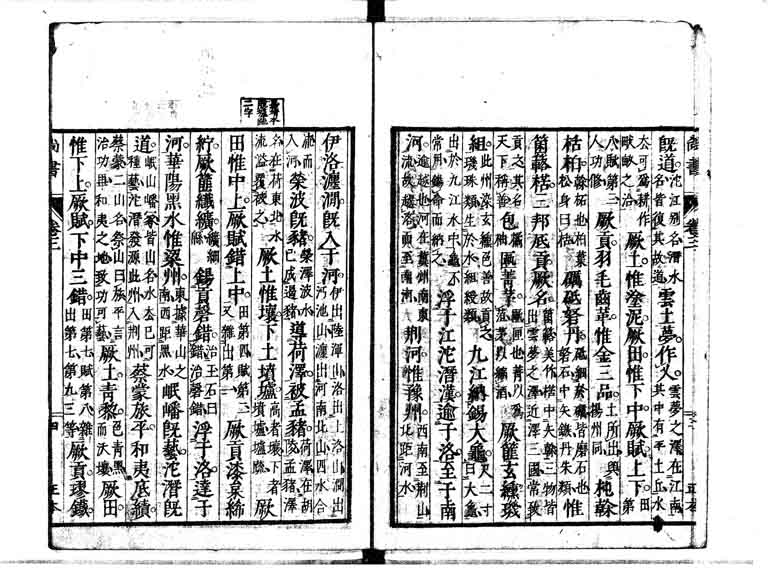 尚書 卷三
既道。沱江别名潛水名皆復其故道 雲土夢作乂。雲夢之澤在江南其中有平土丘水
去可爲耕作畎畝之治 厥土惟塗泥。厥田惟下中厥賦上下。田第
八賦第三人功修 厥貢羽毛齒革惟金三品。土所出與揚州同 杶榦
栝柏。榦柘也柏葉松身曰栝 礪砥砮丹。砥細於礪皆磨石也砮石中矢鏃丹朱類 惟
箘簵楛三邦厎貢厥名。箘簵美竹楛中矢榦三物皆出雲夢之澤近澤三國常致
貢之其名天下稱善 包 匭菁茅。匭匣也菁以爲菹茅以縮酒 厥篚玄纁璣
組。此州染玄纁色善故貢之璣珠類生於水組綬類 九江納錫大龜。尺二寸曰大龜
出於九江水中龜不常用錫命而納之 浮于江沱潛漢逾于洛至于南
河。逾越也河在冀州南東流故越洛而至南河 荊河惟豫州。西南至荊山北距河水
伊洛瀍澗既入于河。伊出陸渾山洛出上洛山澗出沔池山瀍出河南北山四水合
流而入河 滎波既豬。滎澤波水已成遏豬 導荷澤被孟豬。荷澤在胡陵孟豬澤
名在荷東北水流溢覆被之 厥土惟壤下土墳壚。高者壤下者墳壚壚疏 厥
田惟中上厥賦錯上中。田第四賦第二又雜出第一 厥貢漆枲絺
紵厥篚纖纊。纊細綿 錫貢磬錯。治玉石曰錯治磬錯 浮于洛達于
河華陽黑水惟梁州。東據華山之南西距黑水 岷嶓既藝沱潛既
道。岷山嶓冢皆山名水去已可種藝沱潛發源此州入荊州 蔡蒙旅平和夷厎績。
蔡蒙二山名祭山曰旅平言治功畢和夷之地致功可藝 厥土青黎。色青黑而沃壤 厥田
惟下上厥賦下中三錯。田第七賦第八雜出第七第九三等 厥貢璆鐵
尚書 卷三 四